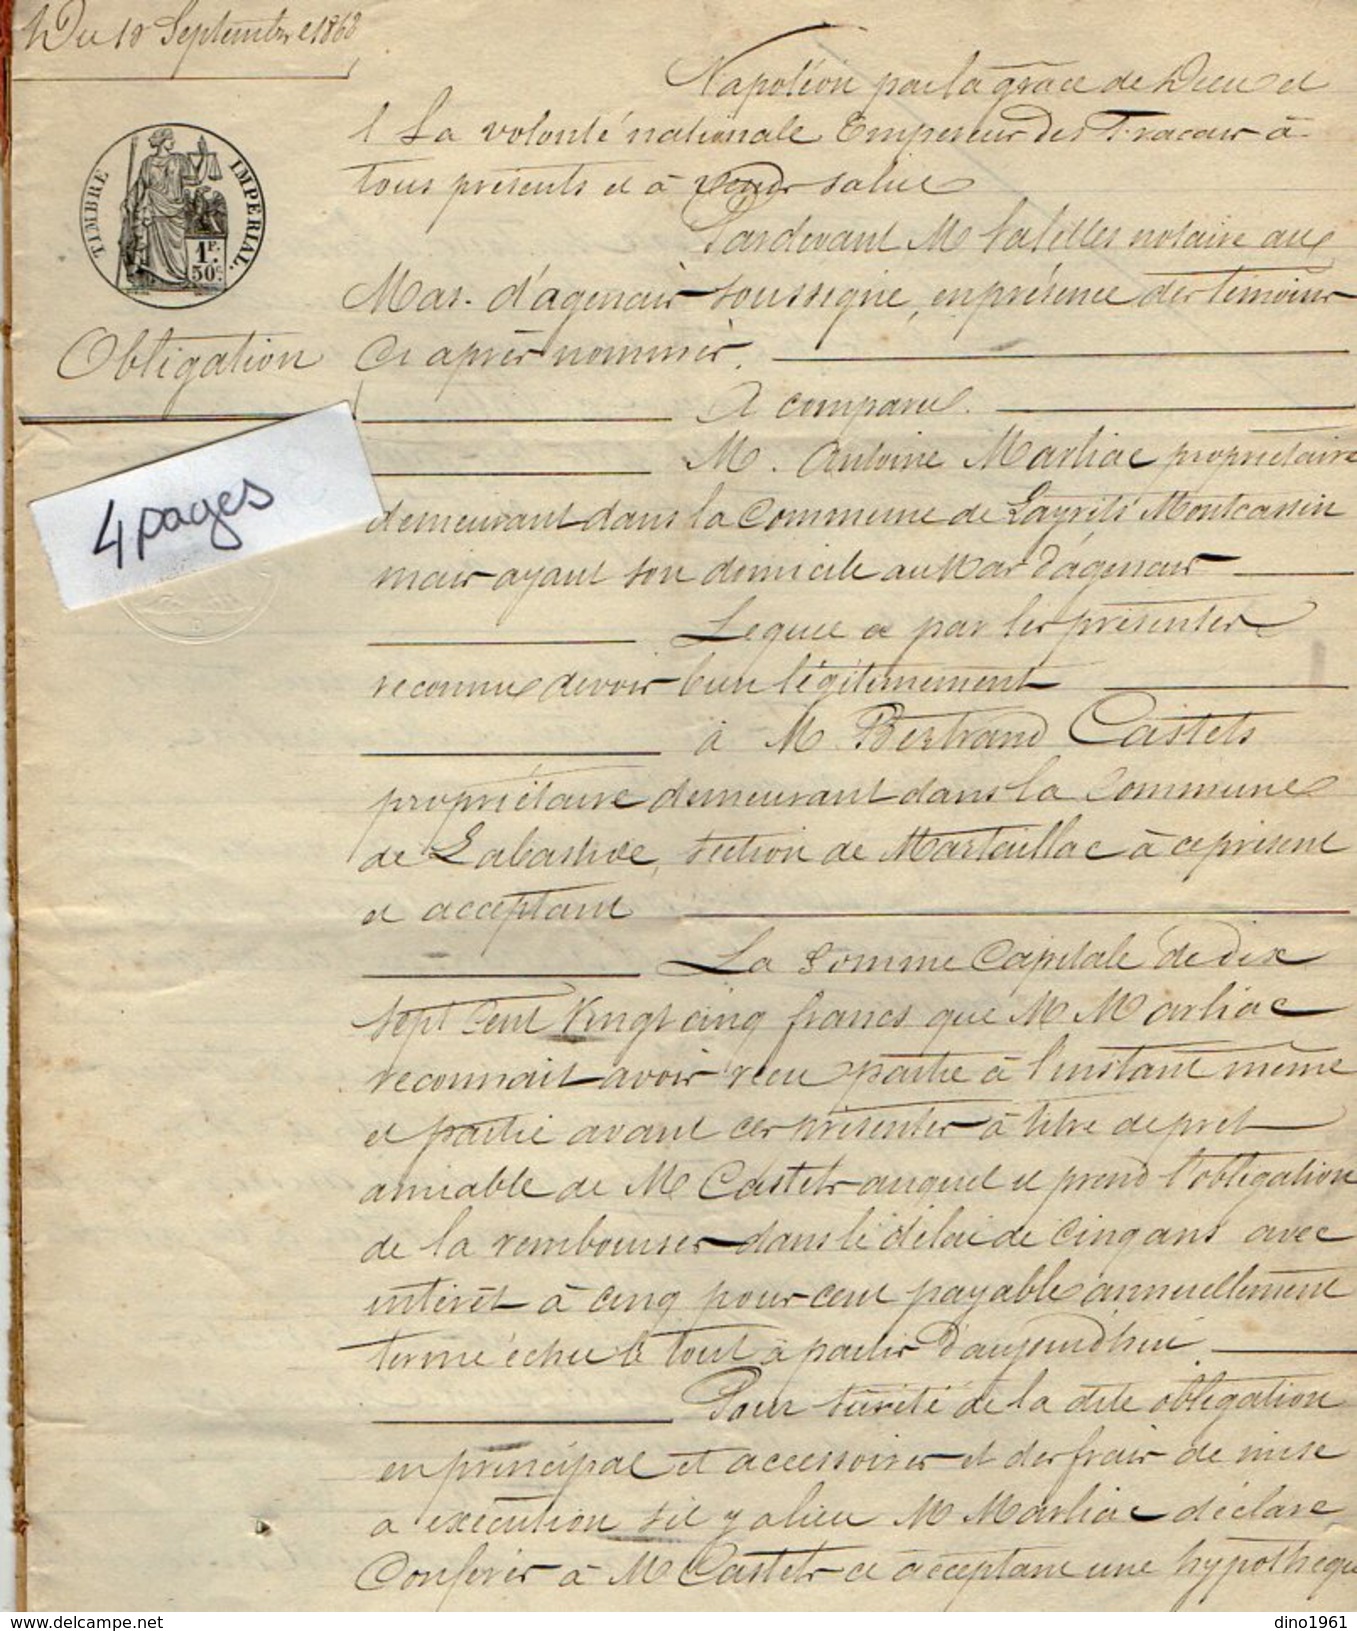 Du 18 Septembre 1868
Napoléon par la grace de Dieu et
La volonté nationale Empereur des Francais à
tous présents et à venir salut
Pardevant Me notaire au
Mas. d'agenais soussigné, en présence des témoins
Ci après nommés.
TIMBRE IMPERIAL.
1F.
50C.
Obligation
A comparu.
M. Antoine Marliac propriétaire
4 pages
demeurant dans la Commune de Leyrits Montcassin
mais ayant son domicile au Mas d'agenais
Lequel a par les présentes
reconnu devoir bien légitimement
à M Bertrand Castets
propriétaire demeurant dans la Commune
de Labastide, section de Martaillac à ce présent
et acceptant
La Somme Capitale de dix
sept Cent Vingt cinq francs que M Marliac
reconnait avoir recu partie à l'instant même
et partie avant ces présentes à titre de pret
amiable de M Castets auquel il prend l'obligation
de la rembourser dans le délai de Cinq ans avec
intérêt à cinq pour cent payable annuellement
terme échu le tout à partir d'aujourd'hui.
Pour sureté de la dite obligation
en principal et accessoires et des frais de mise
a exécution sil y a lieu M Marliac déclare
Conférer à M Castets ce acceptant une hypothèque
dino1961